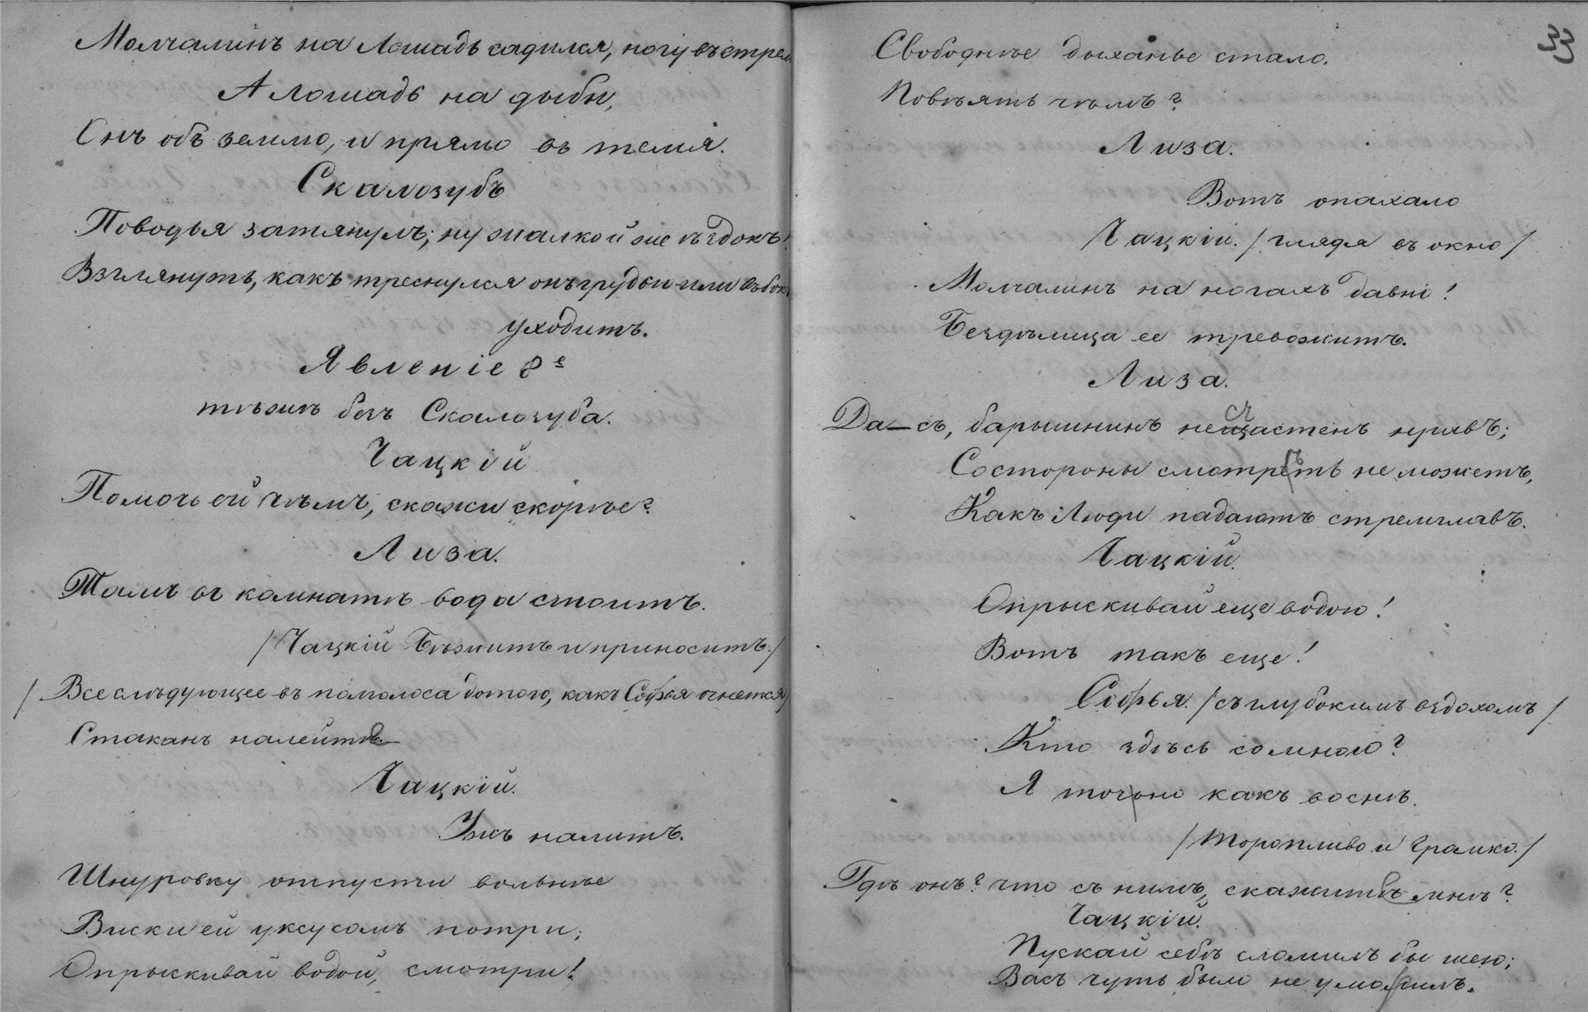 Молчалинъ на Лошадь садился, ногу въ стрем
А лошадь на дыбы,
Онъ объ землю, и прямо въ темя.
Скалозубъ
Поводья затянулъ; ну жалкой же ѣздокъ!
Взглянуть, какъ треснулся онъ грудью или въ бокъ
уходитъ.
Явленіе 8е
тѣжъ безъ Скалозуба.
Чацкій
Помочь ей чѣмъ, скажи скорѣе?
Лиза.
Тамъ въ комнатѣ вода стоитъ.
/Чацкій Бѣжитъ и приноситъ./
/Все слѣдующее въ пополоса дотого, какъ Софья очнется/
Стаканъ налейте
Чацкій.
Ужъ налитъ.
Шнуровку отпусти вольнѣе
Виски ей уксусомъ потри;
Опрыскивай водой, смотри!
33
Свободнѣе дыханье стало.
Повѣять чѣмъ?
Лиза.
Вотъ опахало
Чацкій. /глядя въ окно/
Молчалинъ на ногахъ давно!
Бездѣлица ее тревожитъ.
Лиза.
Да-съ, барышнинъ несчастенъ нравъ;
Состороны смотрѣть не можетъ,
Какъ Люди падаютъ стремглавъ.
Чацкій.
Опрыскивай еще водою!
Вотъ такъ еще!
Софья. /съ глубокимъ вздохомъ/
Кто здѣсь со мною?
Я точьно какъ во снѣ.
/торопливо и громко./
Гдѣ онъ? что съ нимъ, скажитѣ мнѣ?
Чацкій.
Пускай себѣ сломилъ бы шею;
Васъ чуть было не уморилъ.